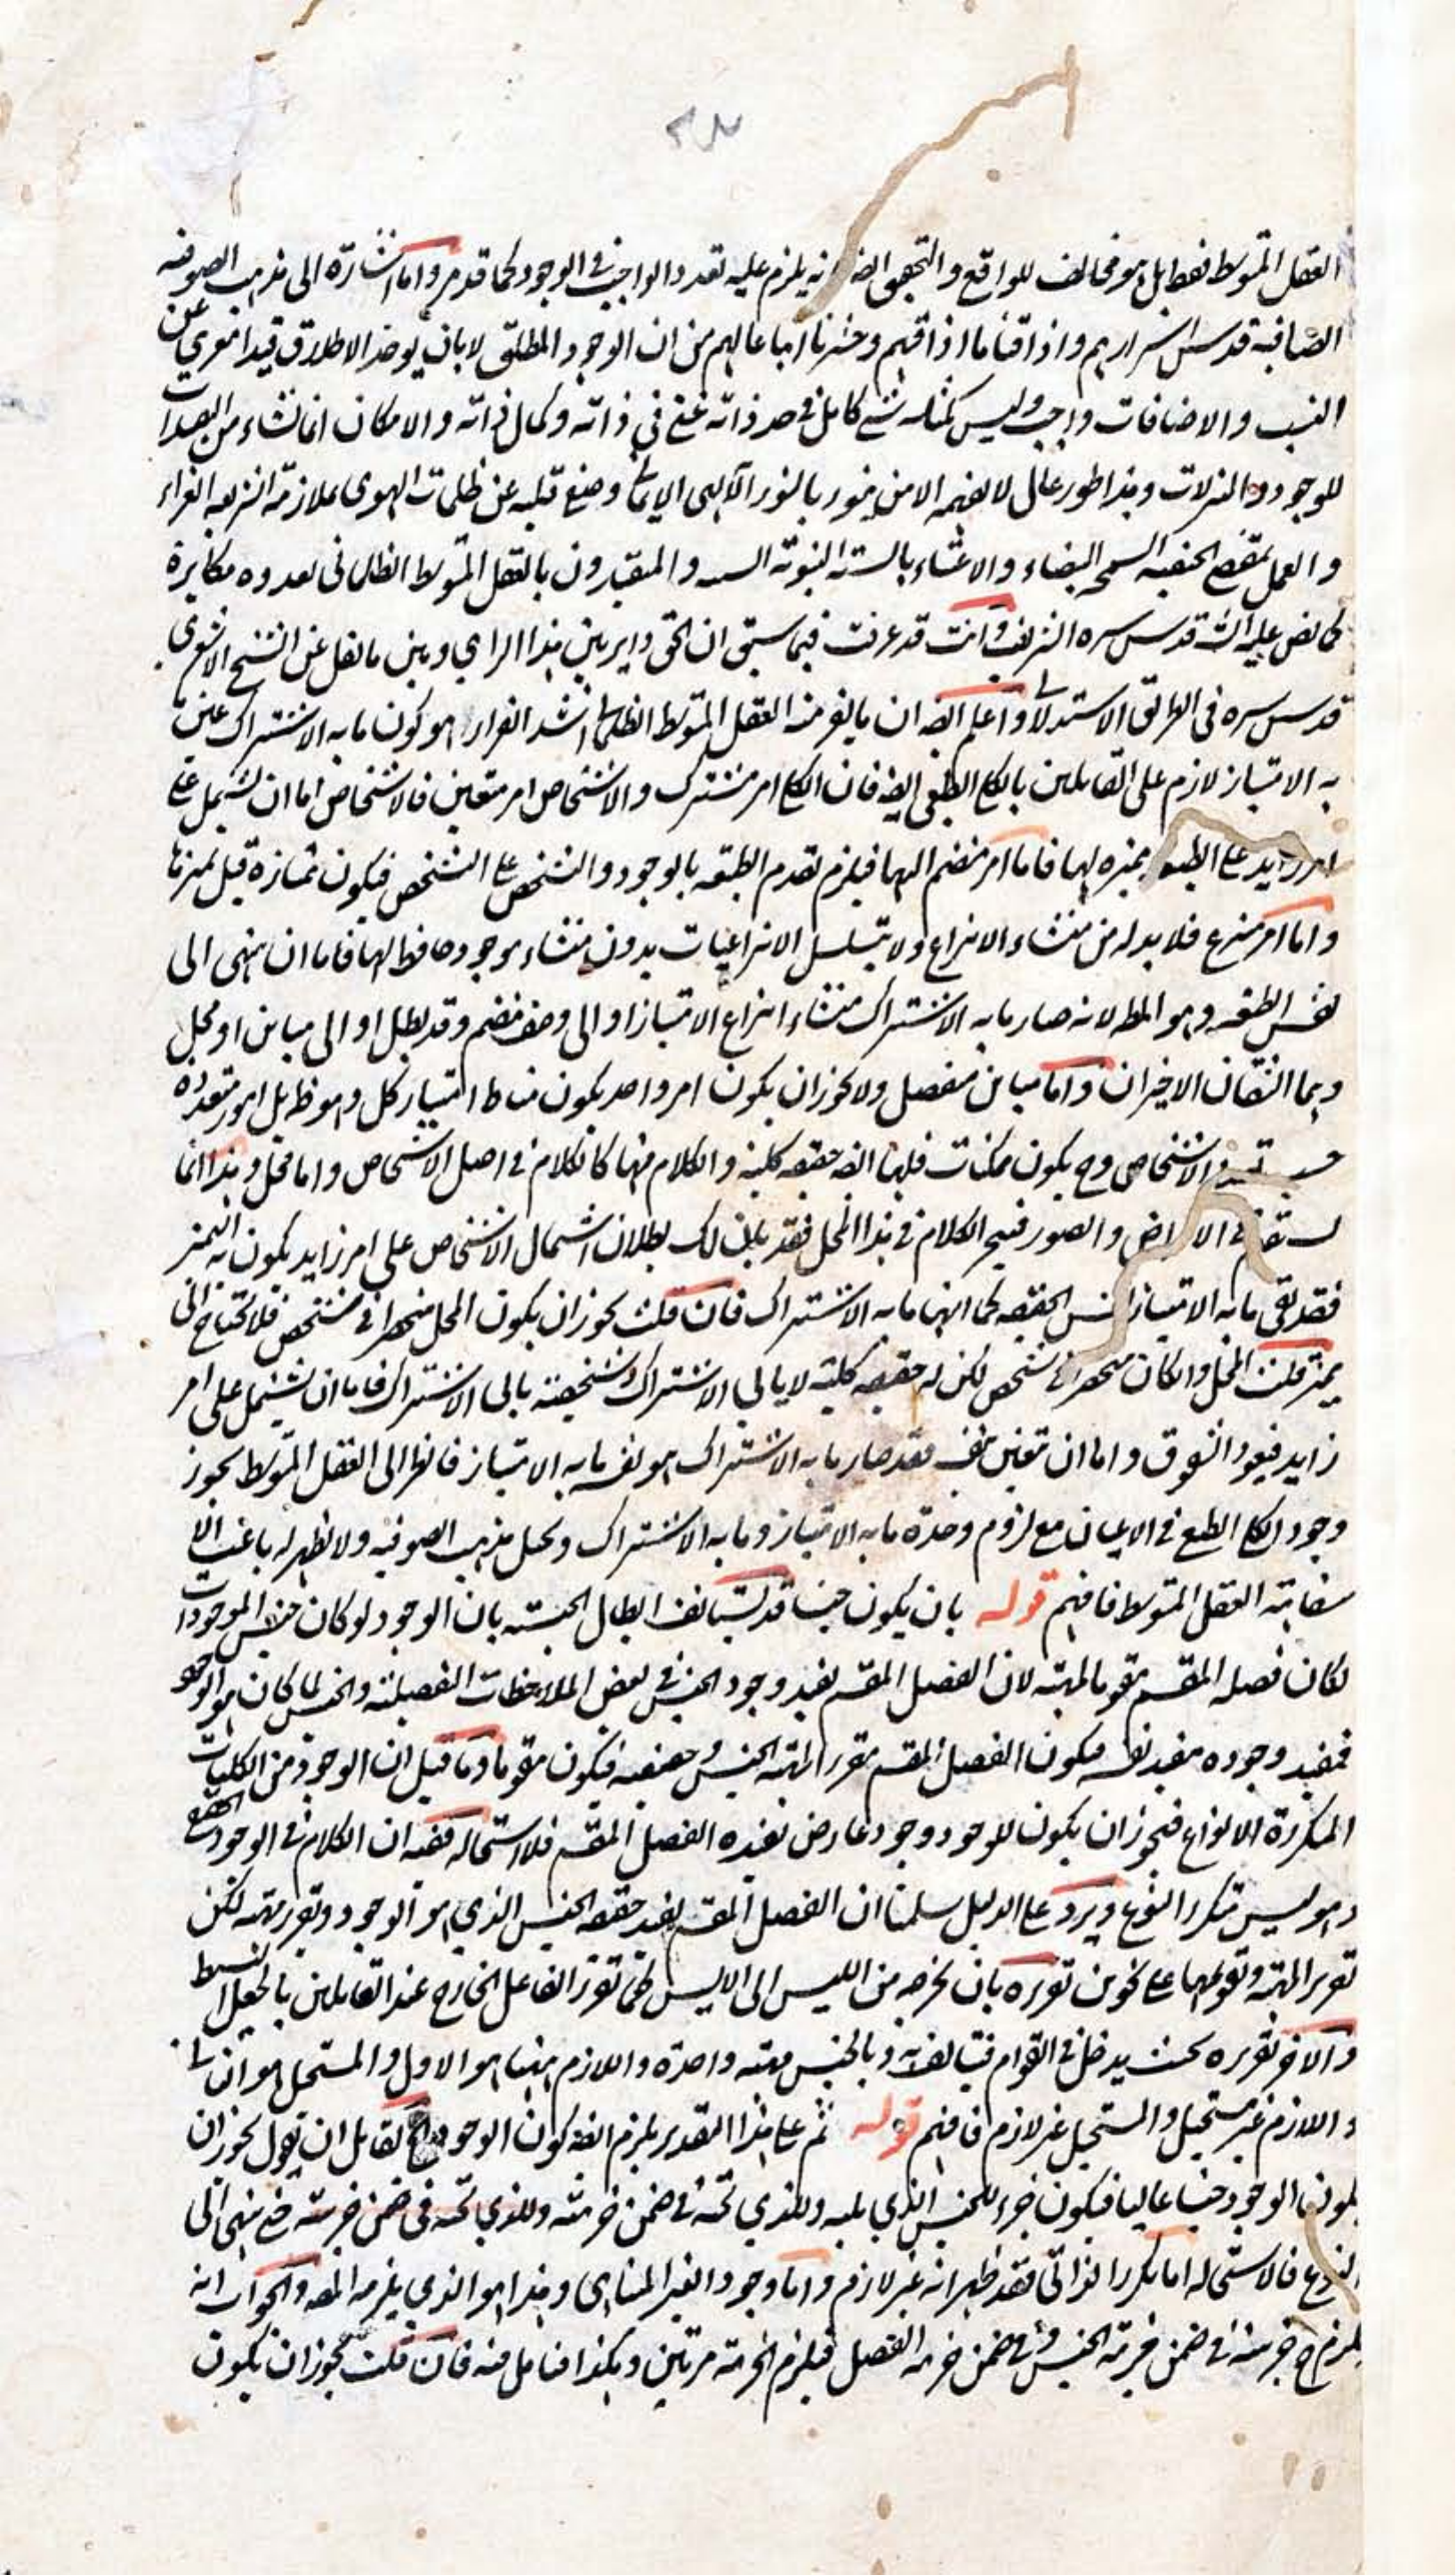 العقل المتوسط فقط بل هو مخالف للواقع والتحقيق ايضا يلزم عليه تعدد الواجب في الوجود كما قد مر واما اشارة الى مذهب الصوفيه
الصافية قدس اسرارهم واذاقنا ما اذاقهم وحشرنا اتباعا لهم من ان الوجود المطلق لا بان يوخذ الاطلاق قيدا معرى عن
النسب والاضافات واجب وليس كمثله شئ كامل في حد ذاته غني في ذاته وكمال ذاته والامكان انما نشاء من
للوجود والتنزلات وهذا طور عال لا يفهمه الا من ينور بالنور الالهي الايماني وضيع قلبه عن ظلمات الهوى بملازمة الشريعة الغراء
والعمل بمقتضى الحنفية السمحة البيضاء والاعتناء بالسنة النبوية السنية والمقيدون بالعقل المتوسط الظلماني يعدوه مكابرة
كما نص عليه الشيخ قدس سره الشريف وانت قد عرفت فيما سبق ان الحق داير بين هذا الراي وبين ما نقل عن الشيخ الاشعري
قدس سره في الطريق الاستدلالي واعلم ايضا ان ما يفر منه العقل المتوسط الظلماني اشد الفرار هو كون ما به الاشتراك عين ما
به الامتياز لازم على القائلين بالكلي الطبعي ايضا فان الكلي امر مشترك والاشخاص امر متعين فالاشخاص اما ان تشتمل على
امر زايد على الطبيعة يميزه لها فاما امر منضم اليها فيلزم تقدم الطبيعة بالوجود والتشخص على التشخص فيكون ممتازة قبل تميزها
واما امر منتزع فلا بد له من منشاء الانتزاع ولا يتسلسل الانتزاعيات بدون منشاء موجود حافظ لها فاما ان ينتهى الى
نفس الطبيعة وهو المط لانه صار ما به الاشتراك منشاء انتزاع الامتياز او الى وصف منضم وقد بطل او الى مباين او محل
وهما الشقان الاخيران واما مباين منفصل ولا يجوز ان يكون امر واحد يكون مناط امتياز كل وهو ظ بل امور متعددة
حسب تعدد الاشخاص وح يكون ممكنات فلها ايضا حقيقة كلية والكلام فيها كالكلام في اصل الاشخاص واما محل وهذا انما
يستقيم في الاعراض والصور فيجر الكلام في هذا المحل فقد بان لك بطلان اشتمال الاشخاص على امر زايد يكون به التميز
فقد بقى ما به الامتياز نفس الحقيقة كما انها ما به الاشتراك فان قلت يجوز ان يكون المحل منحصرا في شخص فلا يحتاج الى
مميز قلت المحل وان كان منحصرا في شخص لكن له حقيقة كلية لا يابى الاشتراك وشخصيته يابى الاشتراك فاما ان يشتمل على امر
زايد فيعود الشقوق واما ان تعين بنفسه فقد صار ما به الاشتراك هو نفس ما به الامتياز فانظر الى العقل المتوسط يجوز
وجود الكلي الطبعي في الاعيان مع لزوم وحدة ما به الامتياز وما به الاشتراك ويحيل مذهب الصوفية ولا يظهر له باعث الا
سفاهة العقل المتوسط فافهم قوله بان يكون جنسا قد يستانف ابطال الجنسية بان الوجود لو كان جنس الموجودات
لكان فصله المقسم مقوما لمهيته لان الفصل المقسم يفيد وجود الجنس في بعض الملاحظات التفصيلية والجنس لما كان هو الوجود
فمفيد وجوده مفيد نفسه فيكون الفصل المقسم مقررا لمهية الجنس وحقيقته فيكون مقوما وما قيل ان الوجود من الكليات
المتكررة الانواع فيجوز ان يكون للوجود وجود عارض يفيده الفصل المقسم فلا استحالة ففيه ان الكلام في الوجود الحقيقي
وهو ليس متكرر النوع ويرد على الدليل سلمنا ان الفصل المقسم يفيد حقيقة الجنس الذي هو الوجود وتقرر مهيته لكن
تقرير المهية وتقويمها على نحوين تقريره بان يخرجه من الليس الى الايس كما تقرر الفاعل الخارج عند القائلين بالجعل البسيط
والاخر تقريره بحيث يدخل في القوام فيتالف به وبالجنس مهية واحدة واللازم ههنا هو الاول والمستحيل هو الثاني
واللازم غير مستحيل والمستحيل غير لازم فافهم قوله ثم على هذا التقدير يلزم ايضا كون الوجود لقائل ان يقول يجوز ان
يكون الوجود جنسا عاليا فيكون جزء للجنس الذي يليه وللذي تحته في ضمن جزئيته وللذي تحته في ضمن جزئيته حتى ينتهى الى
النوع فالاستحالة اما تكرر الذاتي فقد ظهر انه غير لازم واما وجود الغير المتناهى وهذا هو الذي يلزمه المص والجواب انه
يلزم ح جزئيته في ضمن جزئية الجنس وفي ضمن جزئية الفصل فيلزم الجزئية مرتين وهكذا فتامل فيه فان قلت يجوز ان يكون